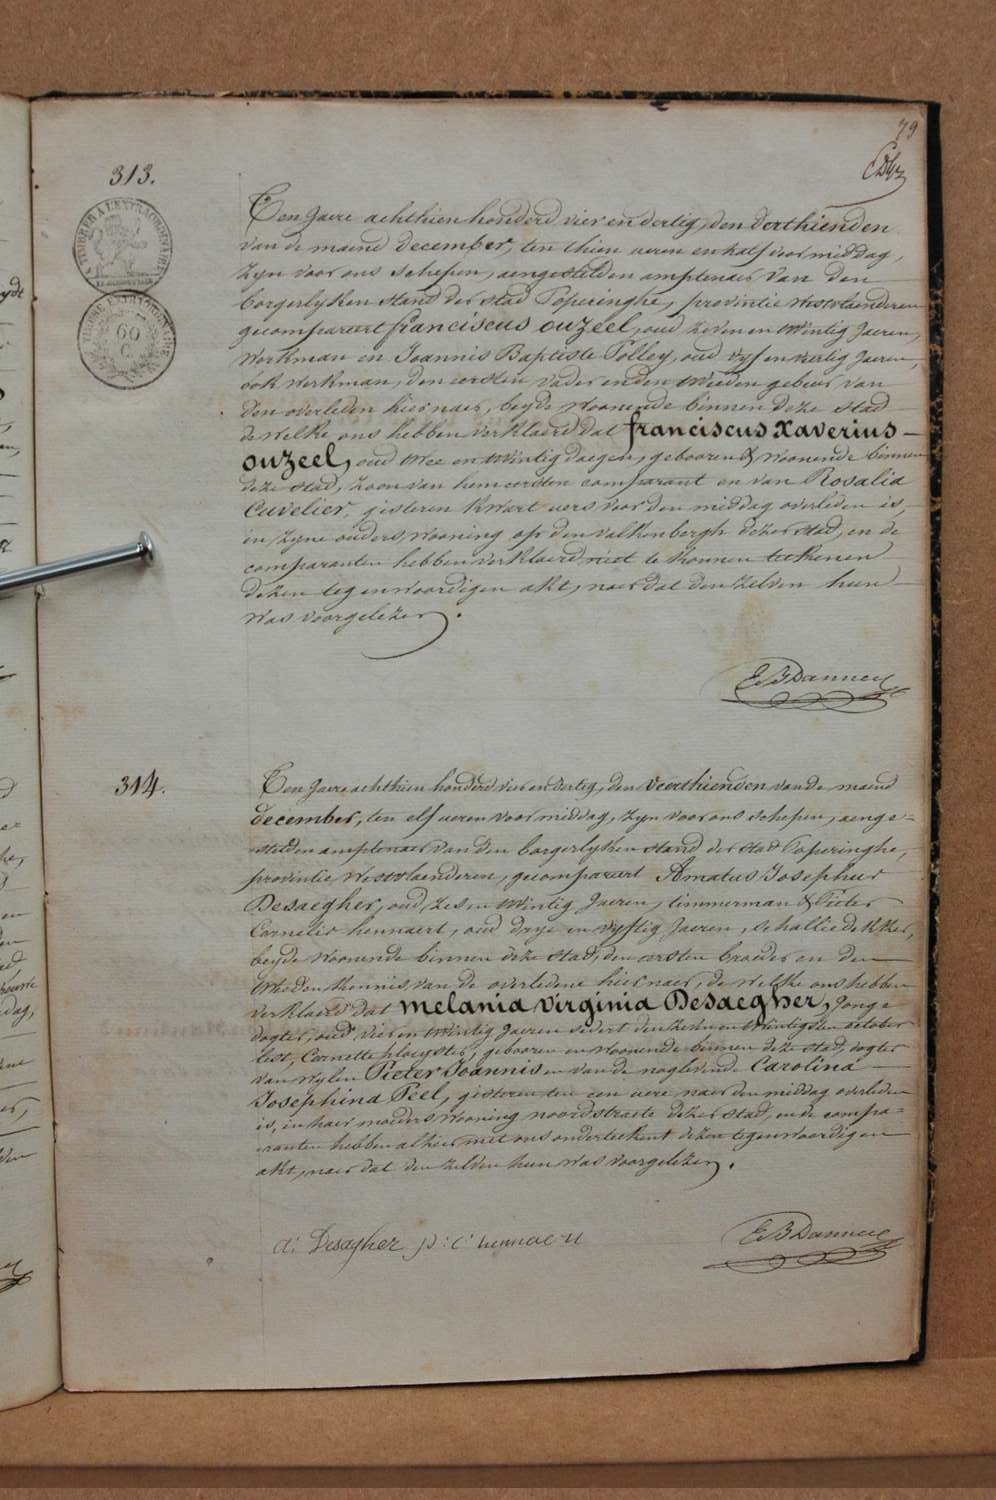 79
313.
TIMBRE A L'EXTRAORDINAIRE
TIMBRE EXTRAORDINAIRE
60
C
Ten Jaere achthien honderd vier en dertig, den derthienden
van de maend december, ten thien ueren en half voor middag,
zyn voor ons schepen, aengestelden amptenaer van den
borgerlyken stand der stad Poperinghe, provintie Westvlaenderen
gecompareert franciscus ouzeel, oud zeven en twintig Jaeren,
werkman en Joannis Baptiste Polley, oud vyf en veertig Jaeren,
óók werkman, den eersten vader en den tweeden gebeur van
den overleden hiernaer, beyde woonende binnen deze stad
de welke ons hebben verklaerd dat franciscus xaverius
ouzeel, oud twee en twintig daegen, gebooren & woonende binnen
deze stad, zoon van hem eersten comparant en van Rosalia
Cuvelier, gisteren kwart uers voor den middag overleden is,
in zyne ouders wooning op den valkenbergh dezer stad, en de
comparanten hebben verklaerd niet te konnen teekenen
dezen tegenwoordigen akt, naer dat den zelven hun
was voorgelezen.
E B Danneel
314.
Ten Jaere achthien honderd vier en dertig, den veerthienden van de maend
december, ten elf ueren voor middag, zyn voor ons schepen, aenge=
stelden amptenaer van den borgerlyken stand der stad Poperinghe,
provintie Westvlaenderen, gecompareert Amatus Josephus
Desaegher, oud zes en twintig Jaeren, timmerman & Pieter
Cornelis hennaert, oud drye en vyftig Jaeren, schalliedekker,
beyde woonende binnen deze stad, den eersten broeder en den
tweeden kennis van de overledene hiernaer, de welke ons hebben
verklaerd dat melania virginia Desaegher, Jonge
dogter, oud vier en twintig Jaeren sedert den zeven en twintigsten october
lest, Cornetteploeyster, gebooren en woonende binnen deze stad, dogter
van wylen Pieter Joannis en van de naglevende Carolina
Josephina Peel, gisteren ten een uere naer den middag overleden
is, in haer moeders wooning noordstraete dezer stad, en de compa=
ranten hebben alhier met ons onderteekent dezen tegenwoordigen
akt, naer dat den zelven hun was voorgelezen.
a: Desagher p: c: hennaert
E B Danneel